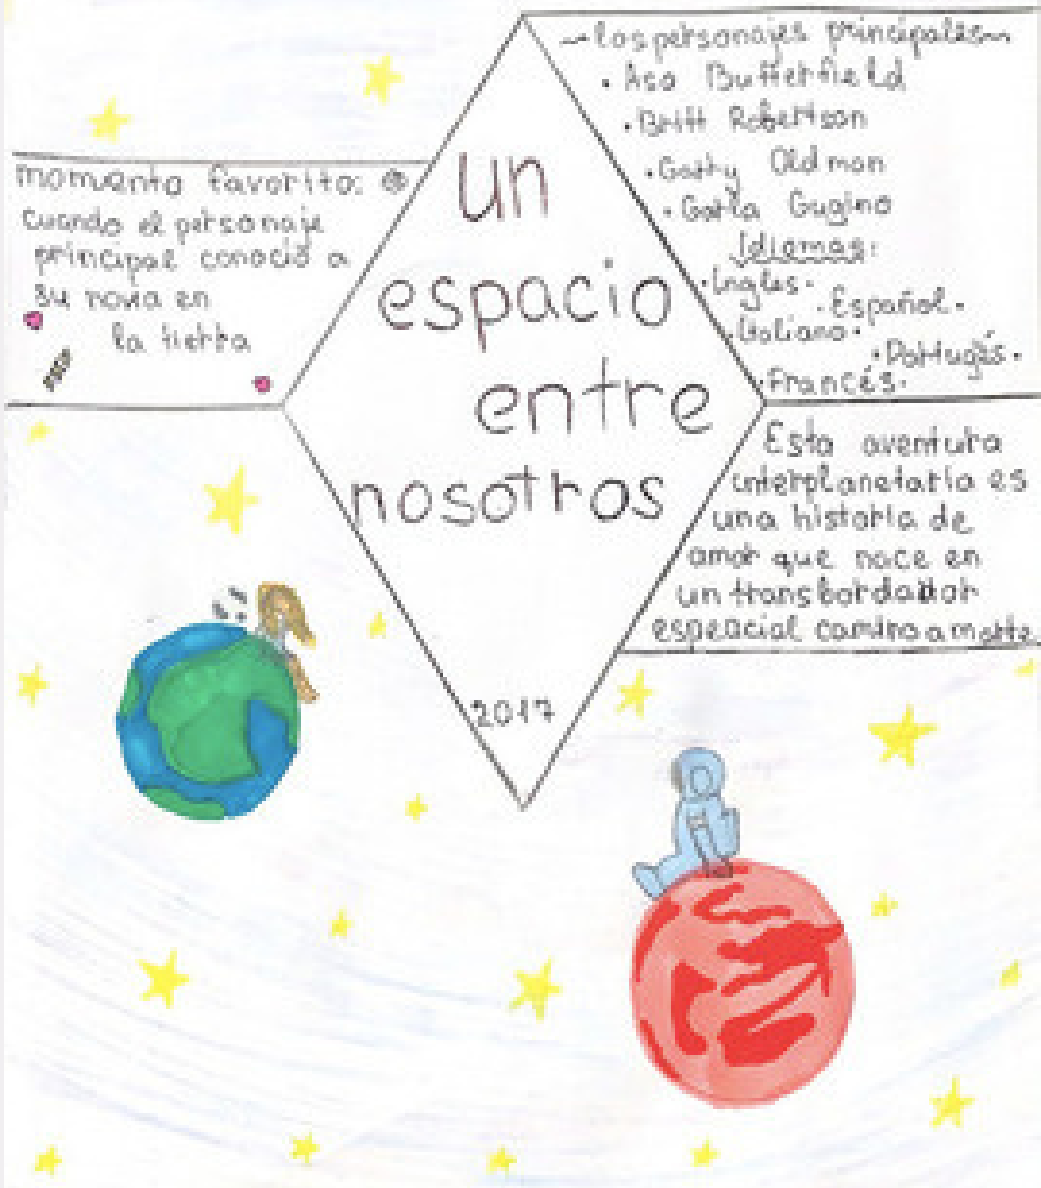 un
espacio
entre
nosotros
2017
momento favorito:
cuando el personaje
principal conoció a
su novia en
la tierra
los personajes principales
• Asa Butterfield
• Britt Robertson
• Garhy Oldman
• Garla Gugino
Idiomas:
• Ingles •
• Español •
• Italiano •
• Portugés •
• Francés •
Esta aventura
interplanetaria es
una historia de
amor que nace en
un transbordador
espeacial camino a marte